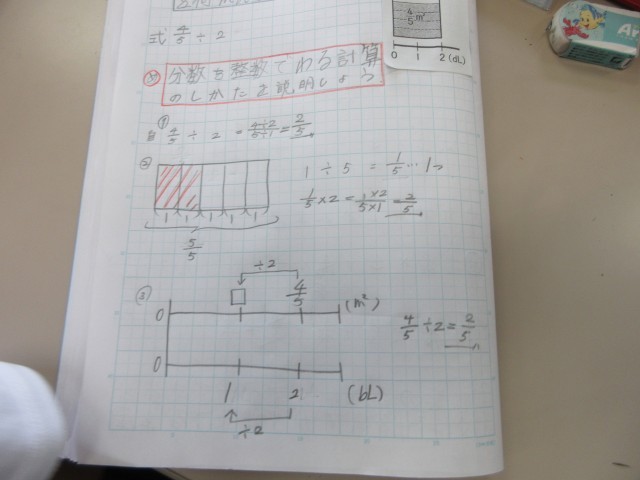 式 4/5 ÷ 2
4/5 m²
0 1 2 (dL)
分数を整数でわる計算
のしかたを説明しよう
① 4/5 ÷ 2 = 4÷2/5÷1 = 2/5
②
1 ÷ 5 = 1/5 … 1つ
1/5 × 2 = 1×2/5×1 = 2/5
1 1 1 1 1
5/5
③
÷2
□ 4/5 (m²)
0
4/5 ÷ 2 = 2/5
0
1 2 (bL)
÷2